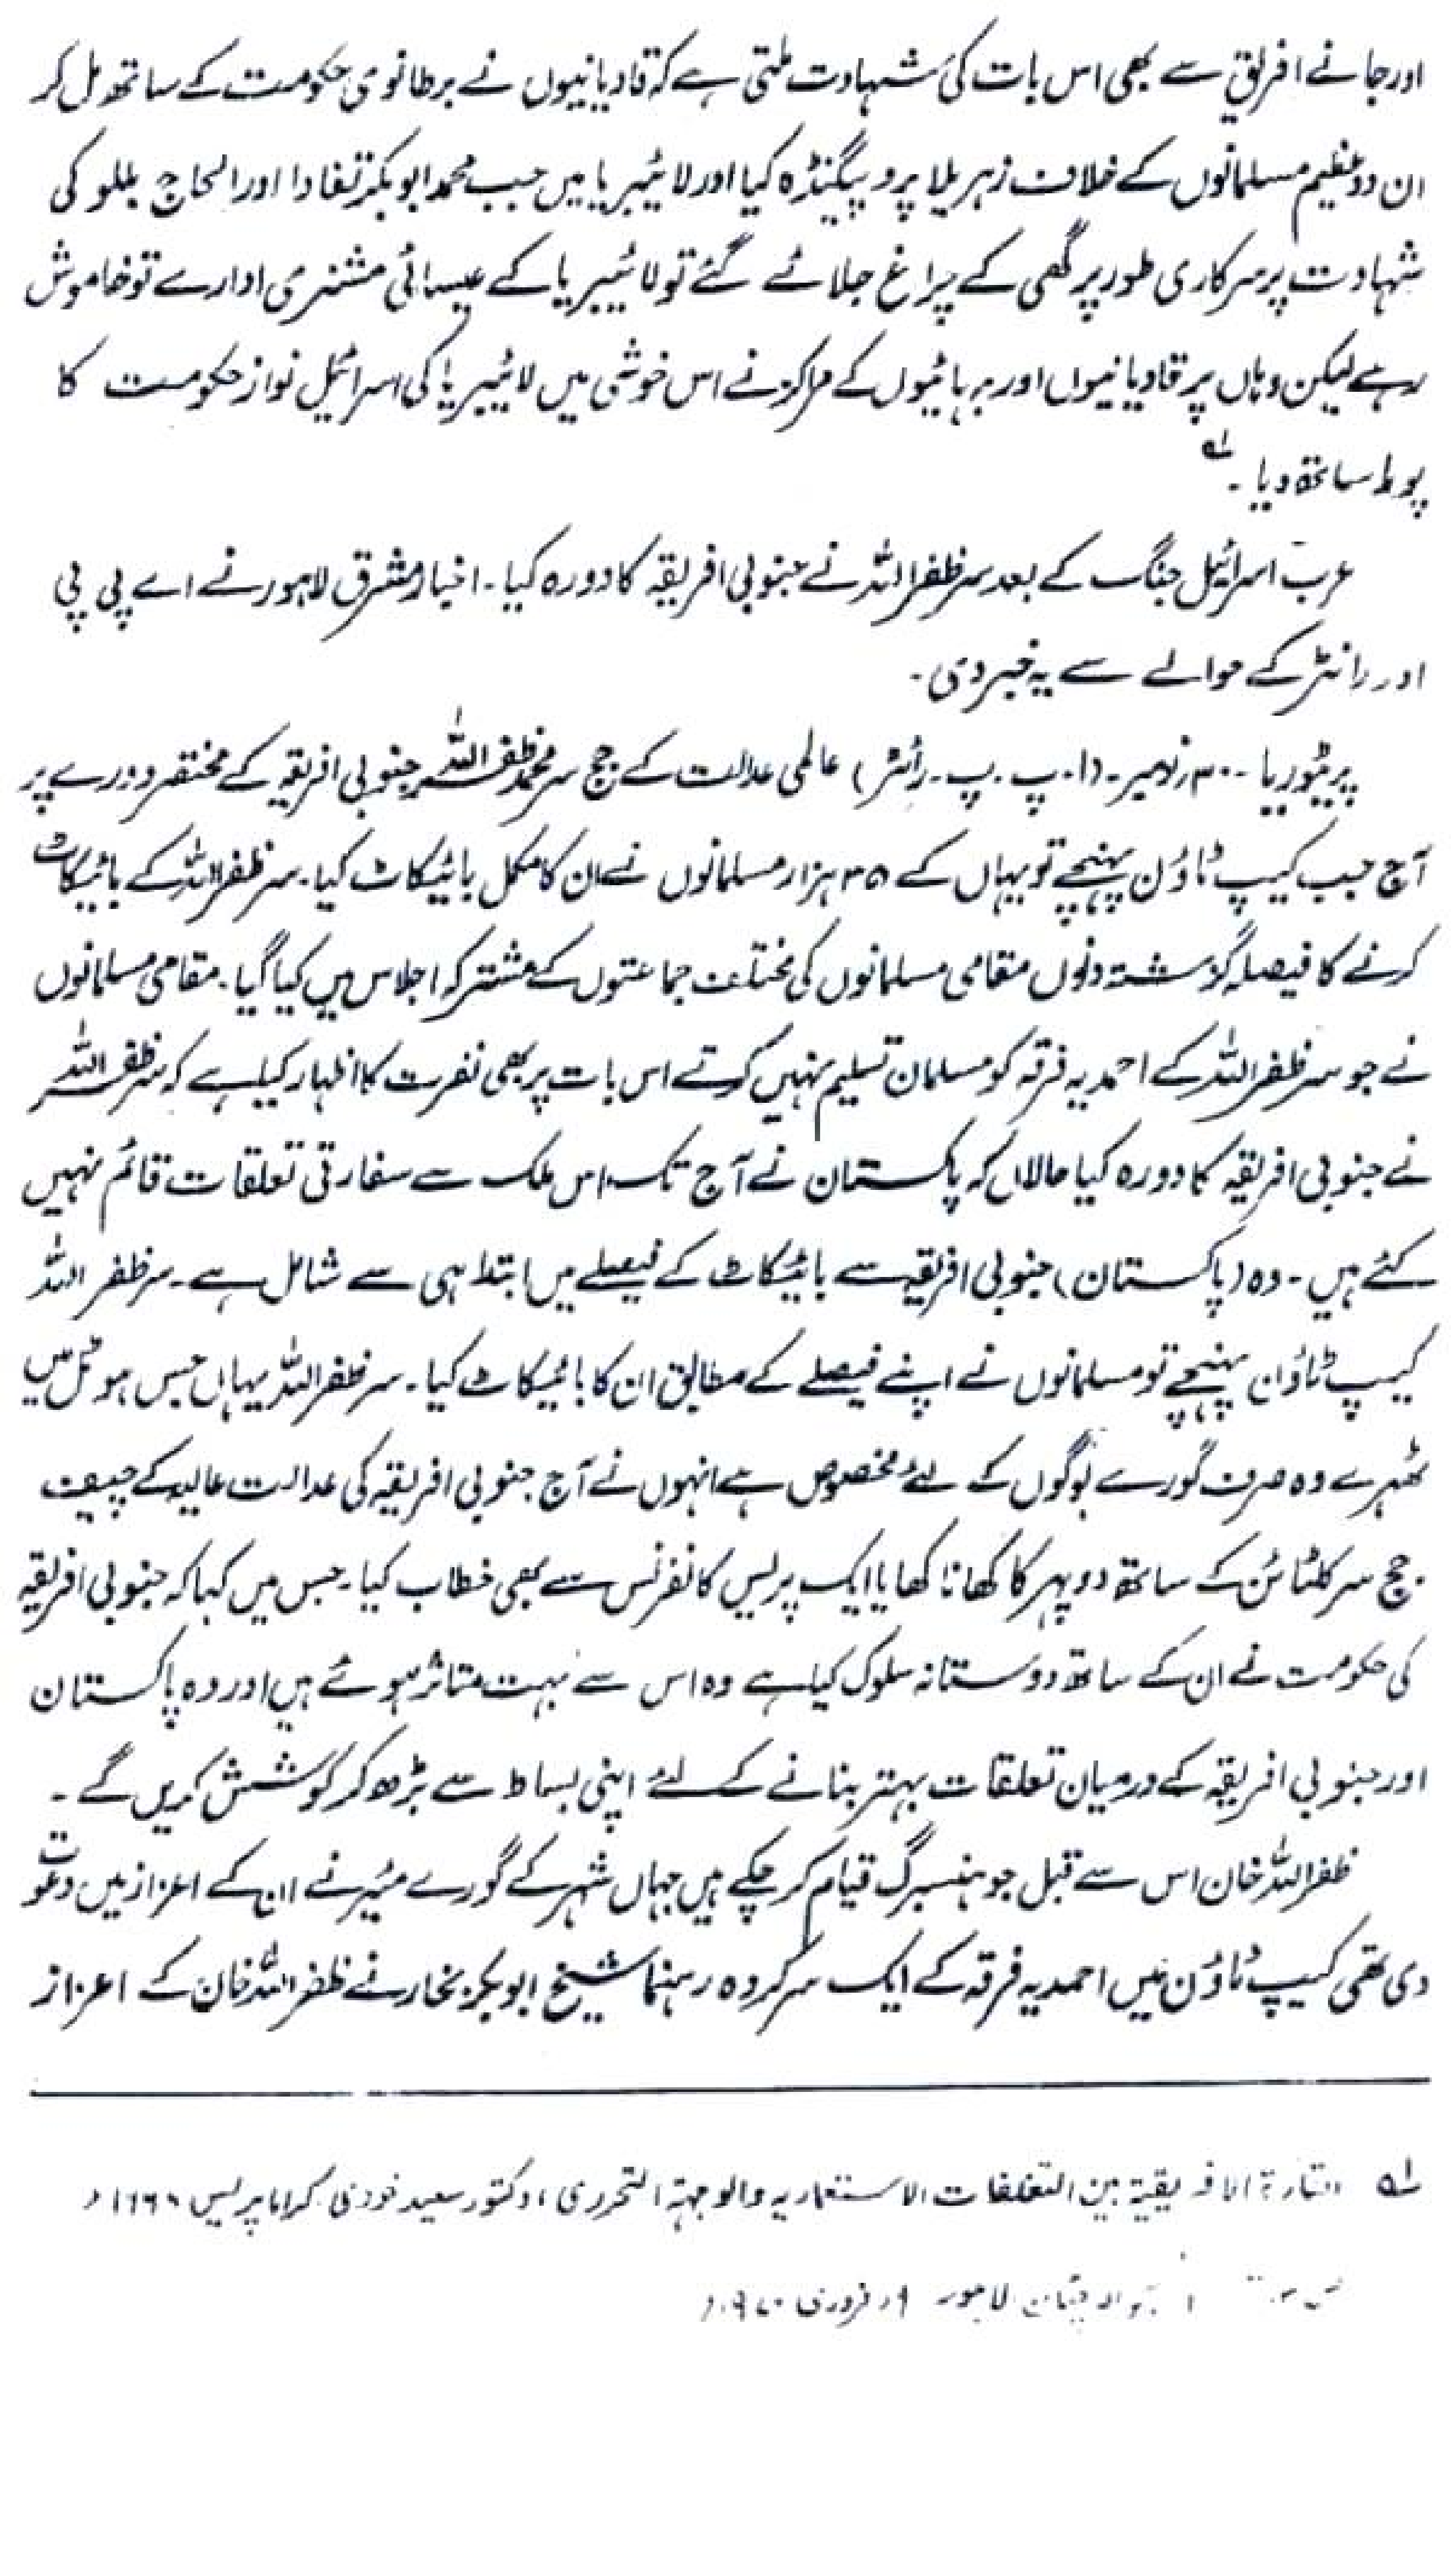 اور جانے افریق سے بھی اس بات کی شہادت ملتی ہے کہ قادیانیوں نے برطانوی حکومت کے ساتھ مل کر
ان دو عظیم مسلمانوں کے خلاف زہریلا پروپیگنڈہ کیا اور لائیبریا میں جب محمد ابوبکر تفادا اور الحاج بللو کی
شہادت پر سرکاری طور پر گھی کے چراغ جلائے گئے تو لائیبیریا کے عیسائی مشنری ادارے تو خاموش
رہے لیکن وہاں پر قادیانیوں اور بہائیوں کے مراکز نے اس خوشی میں لائیبیریا کی اسرائیل نواز حکومت کا
پورا ساتھ دیا ۔ لہ
عرب اسرائیل جنگ کے بعد سر ظفر اللہ نے جنوبی افریقہ کا دورہ کیا ۔ اخبار مشرق لاہور نے اے پی پی
اور رائٹر کے حوالے سے یہ خبر دی ۔
پریٹوریا ۔ ۳۰ نومبر ۔ (ا ۔ پ ۔ پ ۔ رائٹر) عالمی عدالت کے جج سر محمد ظفر اللہ جنوبی افریقہ کے مختصر دورے پر
آج جب کیپ ٹاؤن پہنچے تو یہاں کے ۳۵ ہزار مسلمانوں نے ان کا مکمل بائیکاٹ کیا ۔ سر ظفر اللہ کے بائیکاٹ
کرنے کا فیصلہ گزشتہ دنوں مقامی مسلمانوں کی مختلف جماعتوں کے مشترکہ اجلاس میں کیا گیا ۔ مقامی مسلمانوں
نے جو سر ظفر اللہ کے احمدیہ فرقہ کو مسلمان تسلیم نہیں کرتے اس بات پر بھی نفرت کا اظہار کیا ہے کہ سر ظفر اللہ
نے جنوبی افریقہ کا دورہ کیا حالاں کہ پاکستان نے آج تک اس ملک سے سفارتی تعلقات قائم نہیں
کئے ہیں ۔ وہ (پاکستان) جنوبی افریقہ سے بائیکاٹ کے فیصلے میں ابتدا ہی سے شامل ہے ۔ سر ظفر اللہ
کیپ ٹاؤن پہنچے تو مسلمانوں نے اپنے فیصلے کے مطابق ان کا بائیکاٹ کیا ۔ سر ظفر اللہ یہاں جس ہوٹل میں
ٹھہرے وہ صرف گورے لوگوں کے لئے مخصوص ہے انہوں نے آج جنوبی افریقہ کی عدالت عالیہ کے چیف
جج سر کلٹائن کے ساتھ دوپہر کا کھانا کھایا ایک پریس کانفرنس سے بھی خطاب کیا ۔ جس میں کہا کہ جنوبی افریقہ
کی حکومت نے ان کے ساتھ دوستانہ سلوک کیا ہے وہ اس سے بہت متاثر ہوئے ہیں اور وہ پاکستان
اور جنوبی افریقہ کے درمیان تعلقات بہتر بنانے کے لئے اپنی بساط سے بڑھ کر کوشش کریں گے ۔
ظفر اللہ خان اس سے قبل جوہنسبرگ قیام کر چکے ہیں جہاں شہر کے گورے میئر نے ان کے اعزاز میں دعوت
دی تھی کیپ ٹاؤن میں احمدیہ فرقہ کے ایک سرکردہ رہنما شیخ ابوبکر بخار نے ظفر اللہ خان کے اعزاز
لہ القارۃ الافریقیۃ بین التغلغلات الاستعماریہ والوجہۃ التحرری ، دکتور سعید فوزی پریس ۱۹۶۶ء
چٹان لاہور ۹ فروری ۱۹۷۰ء